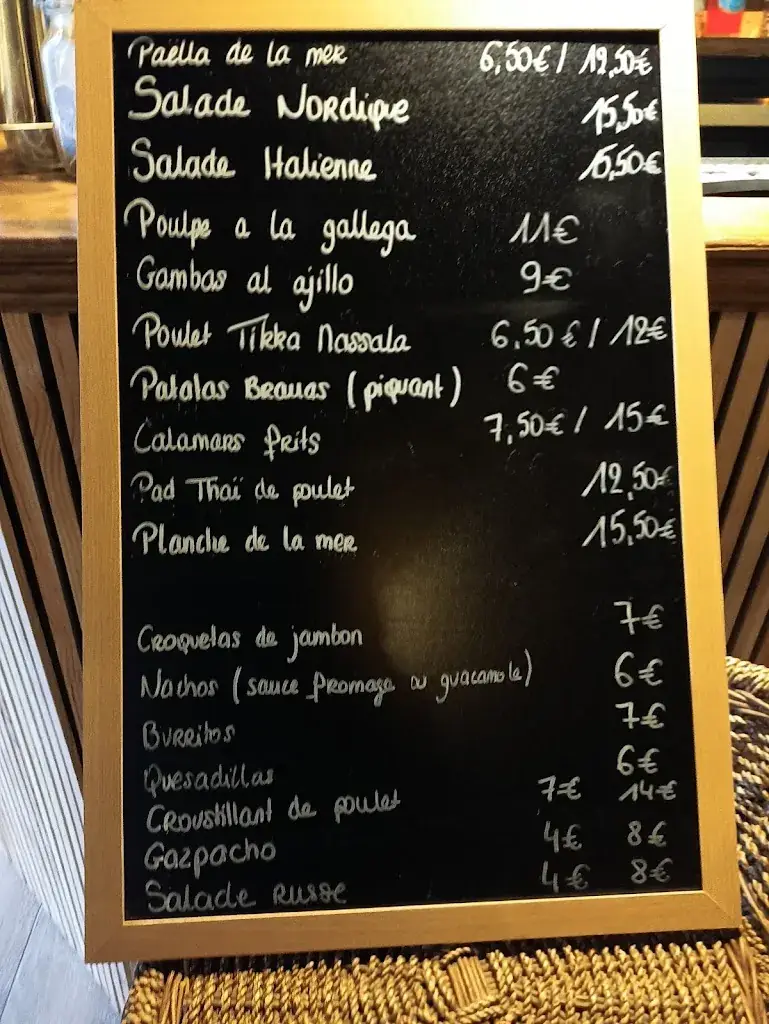 Paëlla de la mer 6,50€ / 12,50€
Salade Nordique 15,50€
Salade Italienne 15,50€
Poulpe a la gallega 11€
Gambas al ajillo 9€
Poulet Tikka Massala 6,50€ / 12€
Patatas Bravas (piquant) 6€
Calamars frits 7,50€ / 15€
Pad Thaï de poulet 12,50€
Planche de la mer 15,50€
Croquetas de jambon 7€
Nachos (sauce fromage ou guacamole) 6€
Burritos 7€
Quesadillas 6€
Croustillant de poulet 7€ 14€
Gazpacho 4€ 8€
Salade Russe 4€ 8€